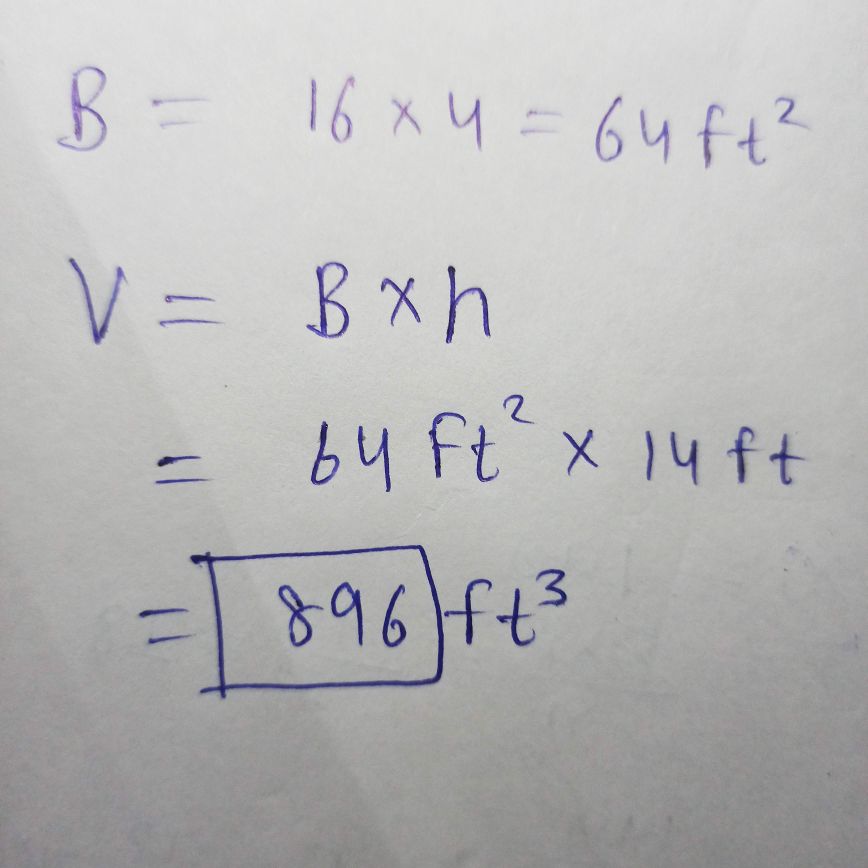 B = 16 × 4 = 64 ft²
V = B × h
= 64 ft² × 14 ft
= 896 ft³